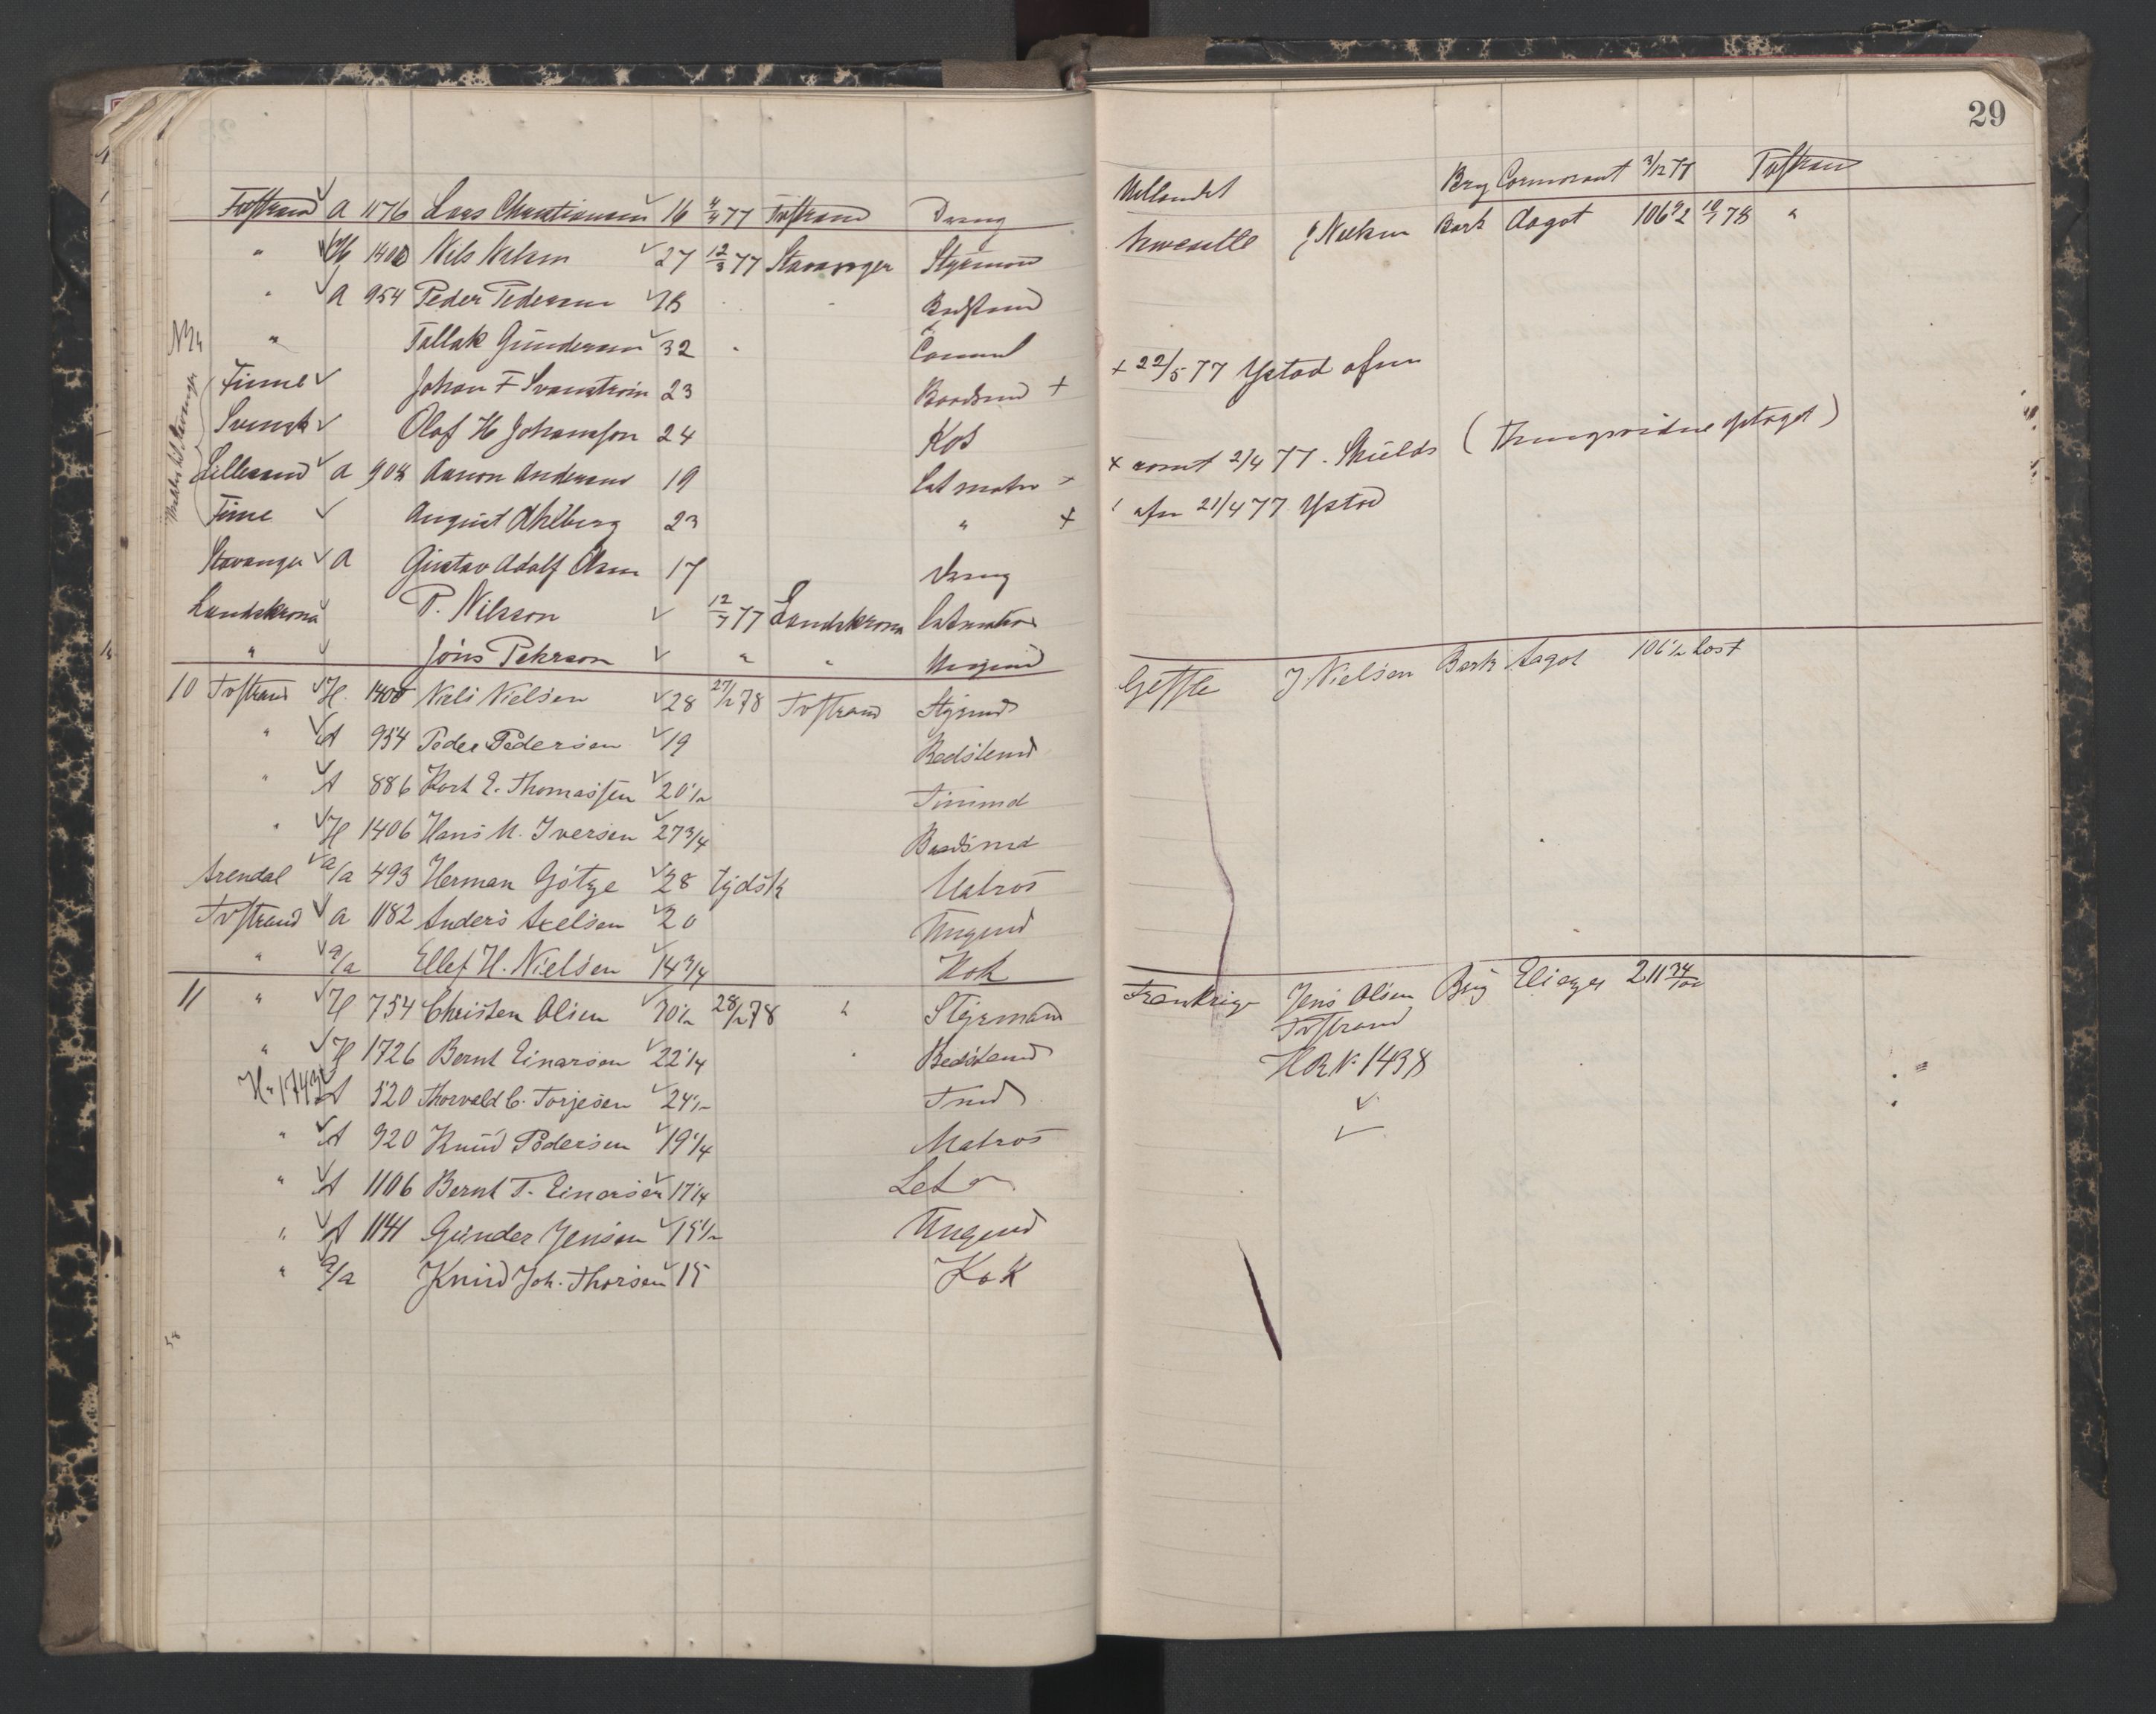 29
Tvstrand a 1176 Lars Christiansen 16 77 Tvstrand Dreng
" H 1400 Nils Nelsen 27 12/3 77 Stavanger Styrmand
" a 954 Peder Pedersen 18 " " Bedstmd
" Tallak Gundersen 32 "
Finne Johan F Svanström 23 Baadsmd +
Svensk Olof H Johannson 24 Kok
Lillesand a 908 Aanon Andersen 19 Letmatr +
Finne August Ahlberg 23 " +
Stavanger a Gustav Adolf Olsen 17 Dreng
Landskrona P. Nilsson 12/7 77 Landskrona Letmatros
" Jöns Pehrson " " Ungmd
10 Tvstrand H. 1400 Niels Nielsen 28 27/2 78 Tvstrand Styrmd
" A 954 Peder Pedersen 19 Bedstemd
" A 886 E. Thomassen 20 1/2 Timmd
" H 1406 Hans M. Iversen 27 3/4 Baadsmd
Arendal a/a 493 Herman Götze 28 Tydsk Matros
Tvstrand a 1182 Anders Axelsen 20 Ungmd
" a/a Ellef H. Nielsen 14 3/4 Kok
11 " H 754 Christen Olsen 30 1/2 28/2 78 " Styrmand
" H 1726 Bernt Einarsen 22 1/4 " Bedstemd
H. 1743 A 520 Thorvald C. Torjesen 24 1/2 Tmd
" A 920 Knud Pedersen 19 1/4 Matros
" A 1106 Bernt T. Einarsen 17 1/4 Let "
" A 1141 Gunder Jensen 15 1/2 Ungmd
" a/a Knud Joh. Thorsen 15 Kok
Brg Cormorant 3/12 77 Tvstrand
Newcastle J Nielsen Bark Aagot 106 1/2 78 "
+ 22/5 77 Ystad afm
+ rømt 2/4 77. Shields
afm 21/4 77 Ystad
Geffle J. Nielsen Bark Aagot 106 1/2 Lost
Frankrige Jens Olsen Brig Eliezer 211 34/100
Tvstrand
HR N. 1438